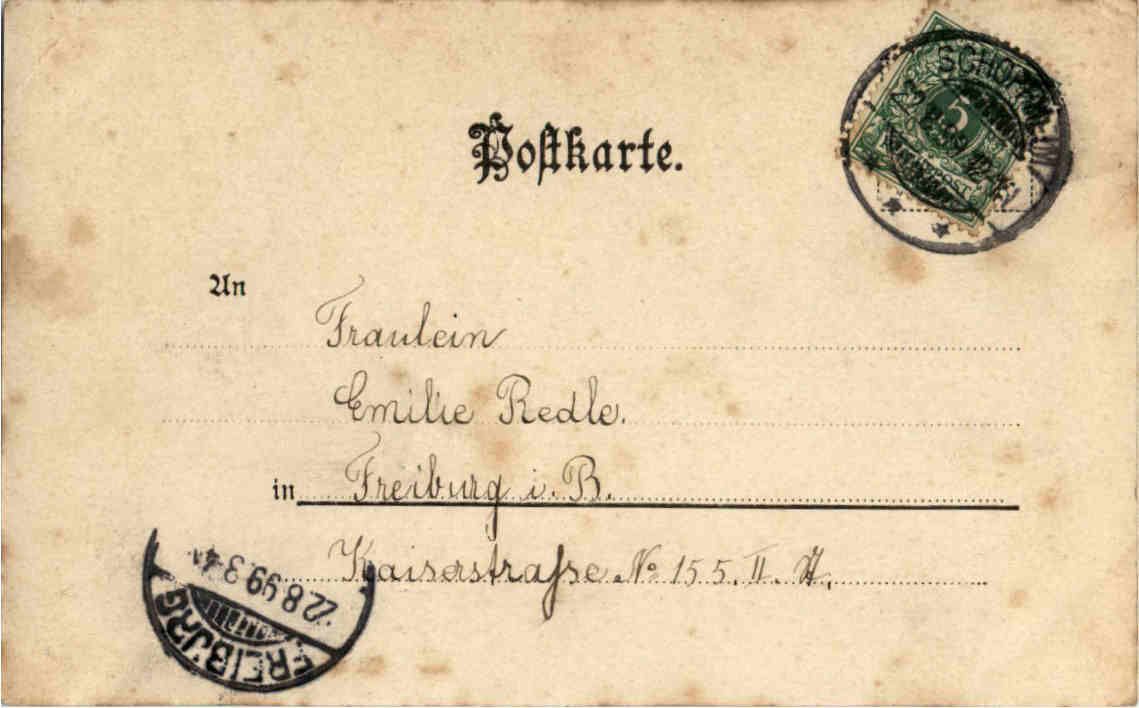 Postkarte.
5
An
Fräulein
Emilie Redle.
in Freiburg i. B.
Kaiserstraſse. No 155. II. St.
22 8 99 3-4
FREIBURG